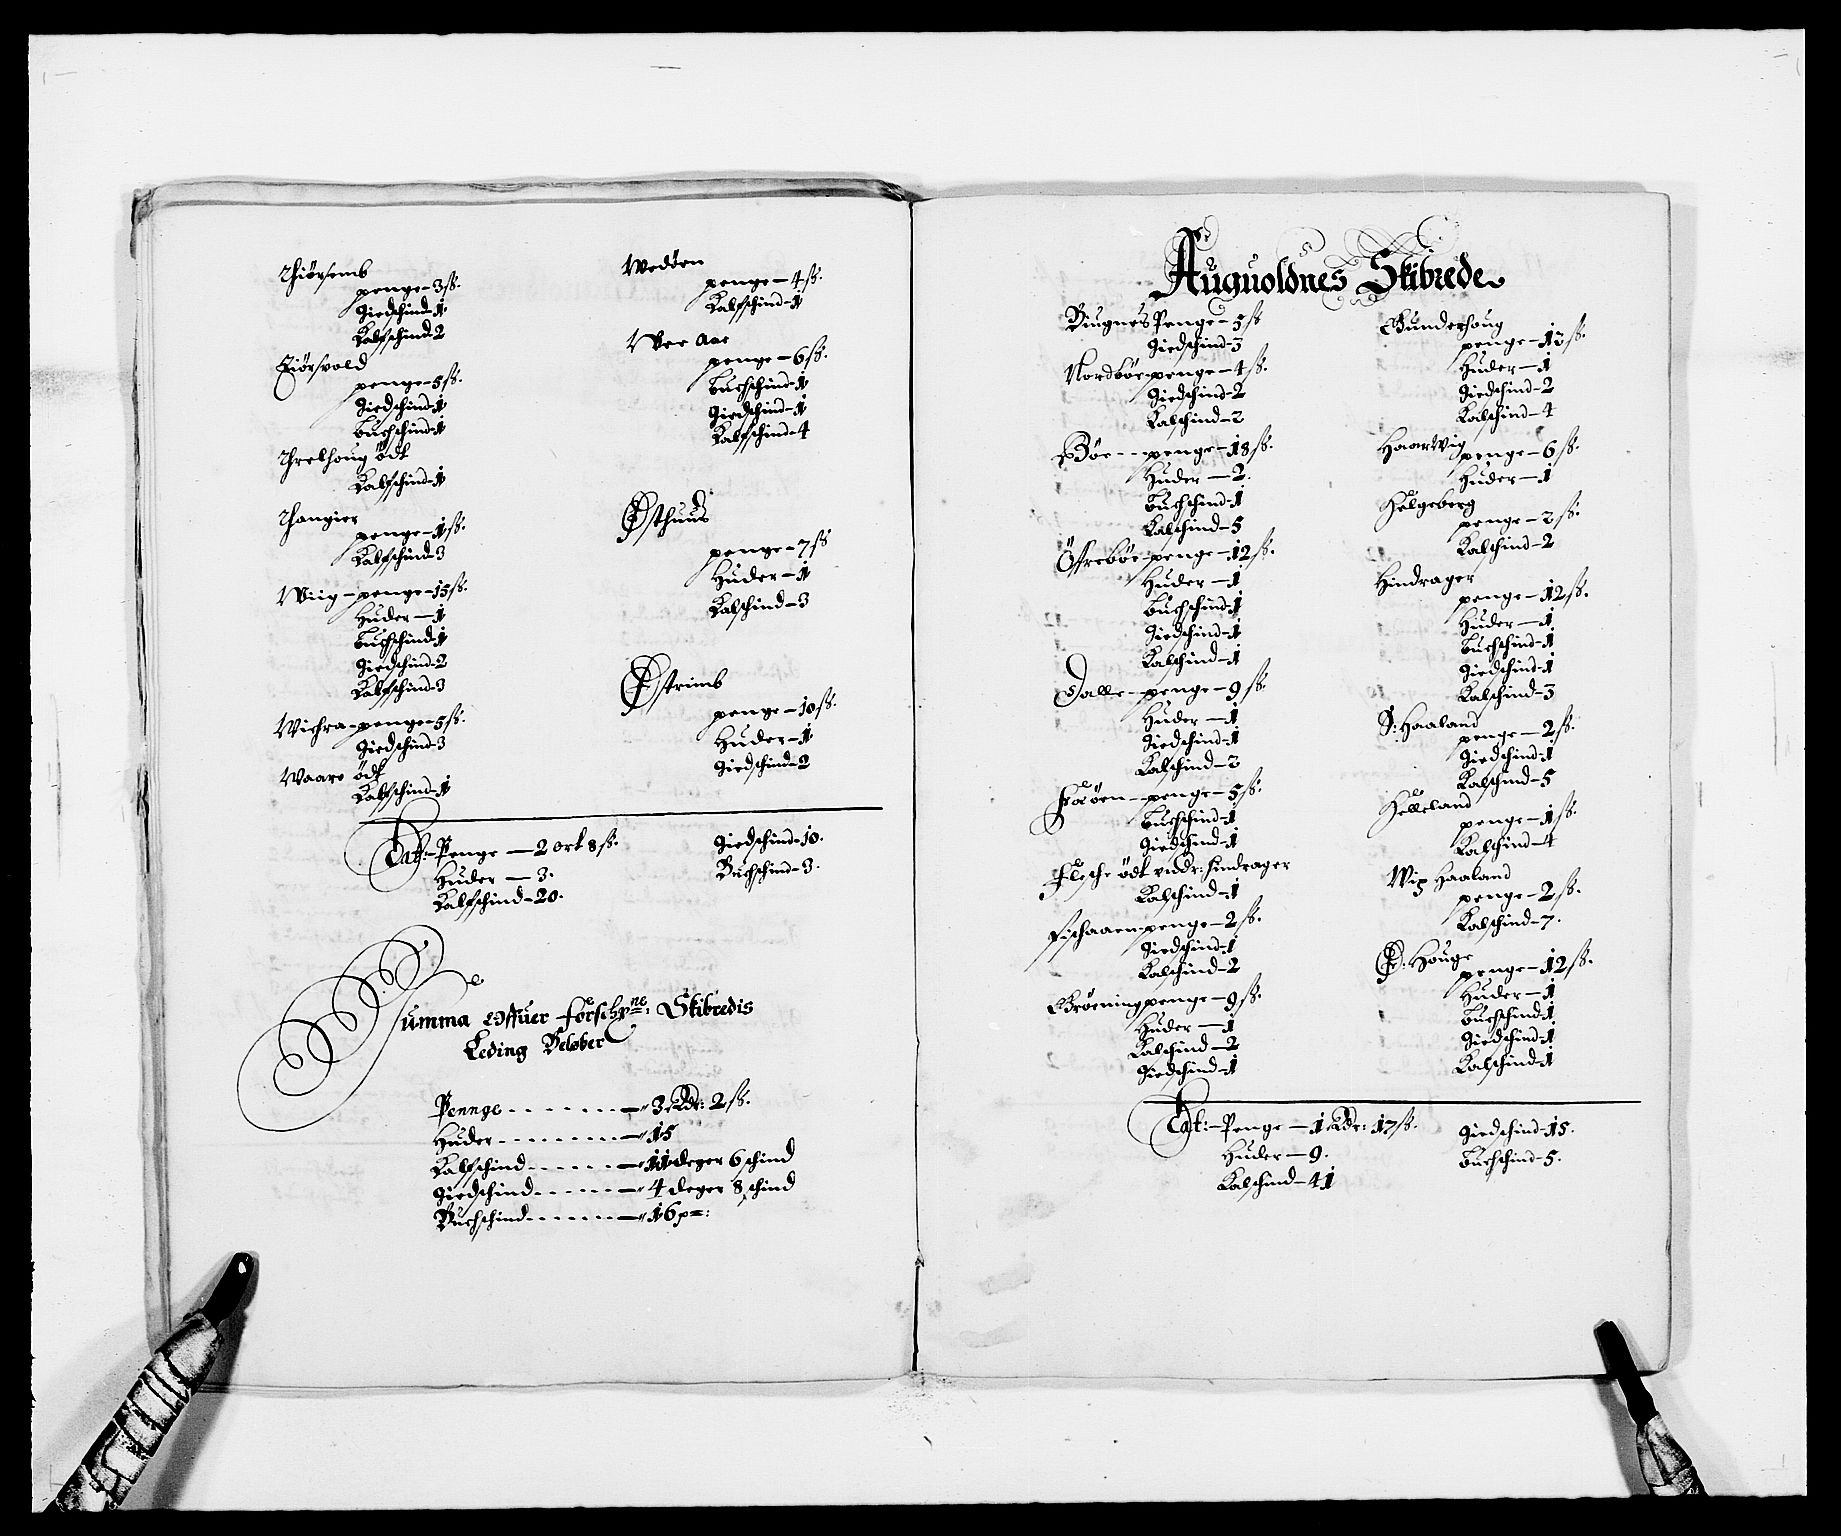 Thiørsemb
penge - 3 ß.
Giedschind - 1
Kalfschind - 2
Tiørsvold
penge - 5 ß.
Giedschind - 1
buchschind - 1
Threlhoug ödt
Kalfschind - 1
Thangier
penge - 1 ß.
Kalfschind - 3
Wiig - penge - 15 ß.
Huder - 1
buchschind - 1
Giedschind - 2
Kalfschind - 3
Wichra - penge - 5 ß.
Giedschind - 3
Waare ödt
Kalfschind - 1
Wedøen
penge - 4 ß.
Kalfschind - 1
Wee Aae
penge - 6 ß.
buchschind - 1
Giedschind - 1
Kalfschind - 4
Østhuus
penge - 7 ß
Huder - 1
Kalfschind - 3
Østrimb
penge - 10 ß.
Huder - 1
Giedschind - 2
Lat: - Penge - 2 ort 8 ß.
Huder - 3.
Kalfschind - 20.
Giedschind - 10.
Buchschind - 3.
Summa Offuer forschpne: Skibredis
Leding Beløber
Pennge - 3 Rdr: 2 ß.
Huder - 15
Kalfschind - 11 deger 6 schind
Giedschind - 4 deger 8 schind
Buchschind - 16 p=:
Auguoldnes Skibrede
Biugnes Penge - 5 ß
Giedschind - 3
Nordbøe penge - 4 ß.
Giedschind - 2
Kalschind - 2
Bøe - - penge - 18 ß.
Huder - 2.
buchschind - 1
Kalschind - 5
Öffrebøe - penge - 12 ß.
Huder - 1
buchschind - 1
Giedschind - 1
Kalschind - 1
Dalle - penge - 9 ß.
Huder - 1
Giedschind - 1
Kalschind - 2
Feøen - penge - 5 ß.
buchschind - 1
Giedschind - 1
Flesche ödt undr: hindrager
Kalschind - 1
Fischaaen penge - 2 ß.
Giedschind - 1
Kalschind - 2
Grøening penge - 9 ß.
Huder - 1
Kalschind - 2
Giedschind - 1
Gundershoug
penge - 12 ß.
Huder - 1
Giedschind - 2
Kalschind - 4
Haarwig
penge - 6 ß.
Huder - 1
Helgeberg
penge - 2 ß.
Kalschind - 2
Hindrager
penge - 12 ß.
Huder - 1
buchschind - 1
Giedschind - 1
Kalschind - 3
S: Haaland
penge - 2 ß.
Giedschind - 1
Kalschind - 5
Helleland
penge - 1 ß.
Kalschind - 4
Haaland
penge - 2 ß.
Kalschind - 7.
Ø: Houge
penge - 12 ß.
Huder - 1
buchschind - 1
Giedschind - 1
Kalschind - 1
Lat: - Penge - 1 Rdr: 17 ß.
Huder - 9.
Kalschind - 41
Giedschind - 15.
buchschind - 5.